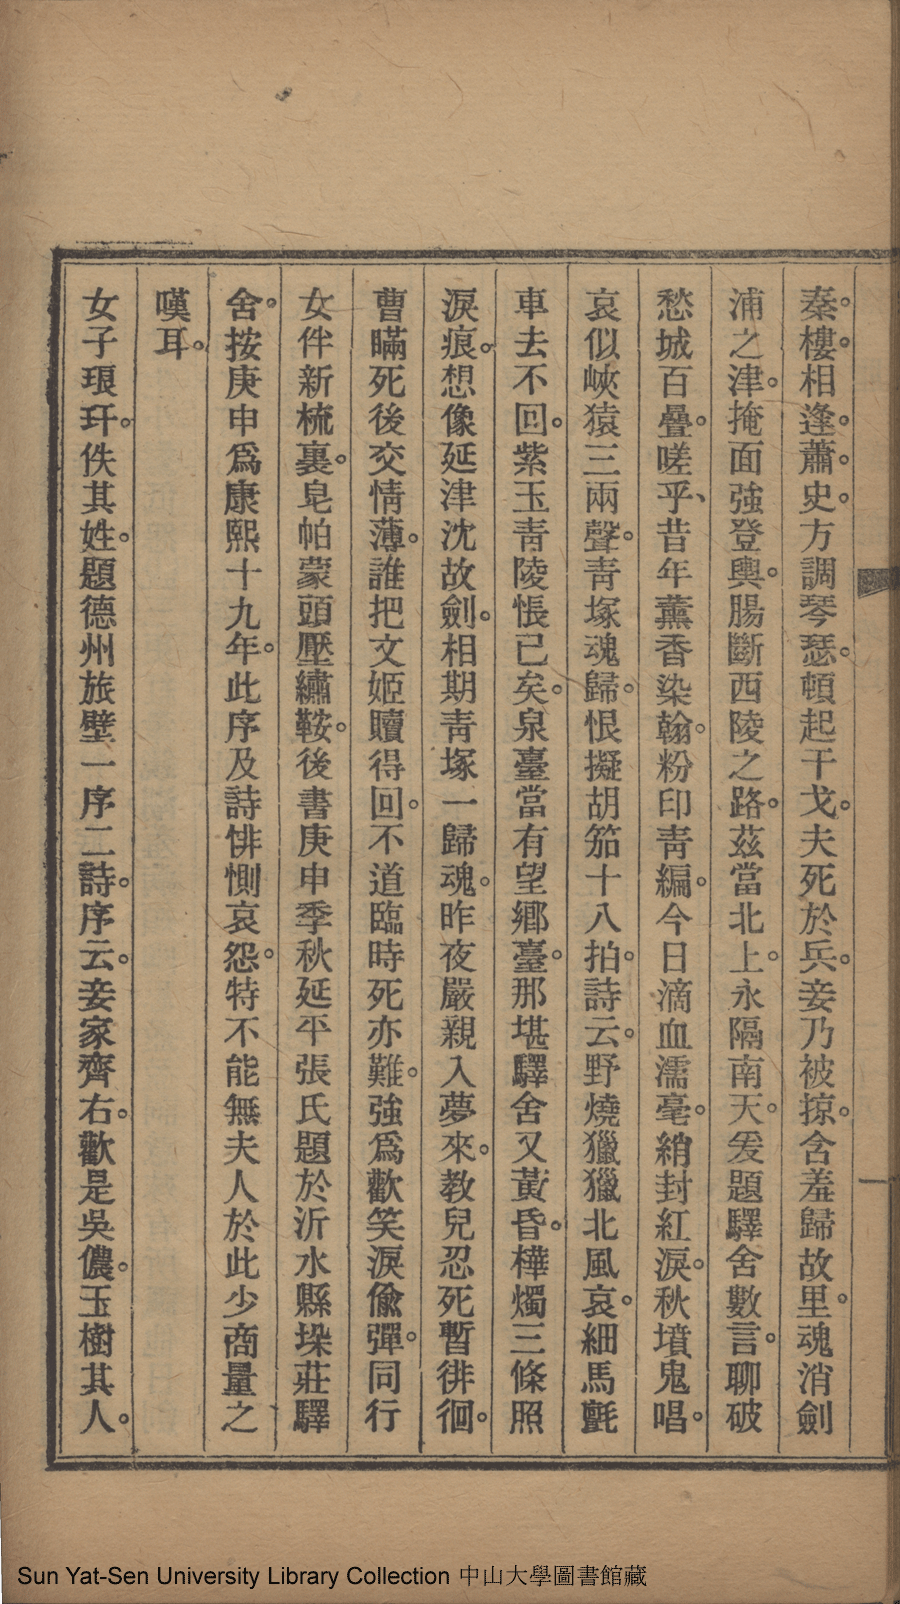 秦。樓。相逢。蕭。史。方調琴瑟。頓起干戈。夫死於兵。妾乃被掠。含羞歸故里。魂消劍
浦之津。掩面強登輿。腸斷西陵之路。茲當北上。永隔南天。爰題驛舍數言。聊破
愁城百疊。嗟乎、昔年薰香染翰。粉印靑編。今日滴血濡毫。綃封紅淚。秋墳鬼唱。
哀似峽猿三兩聲。靑塚魂歸。恨擬胡笳十八拍。詩云。野燒獵獵北風哀。細馬氈
車去不回。紫玉靑陵悵已矣。泉臺當有望鄕臺。那堪驛舍又黃昏。樺燭三條照
淚痕。想像延津沈故劍。相期靑塚一歸魂。昨夜嚴親入夢來。教兒忍死暫徘徊。
曹瞞死後交情薄。誰把文姬贖得回。不道臨時死亦難。強爲歡笑淚偸彈。同行
女伴新梳裏。皂帕蒙頭壓繡鞍。後書庚申季秋延平張氏題於沂水縣垜莊驛
舍。按庚申爲康熙十九年。此序及詩悱惻哀怨。特不能無夫人於此少商量之
嘆耳。
女子琅玕。佚其姓。題德州旅壁一序二詩。序云。妾家齊右。歡是吳儂。玉樹其人。
Sun Yat-Sen University Library Collection 中山大學圖書館藏